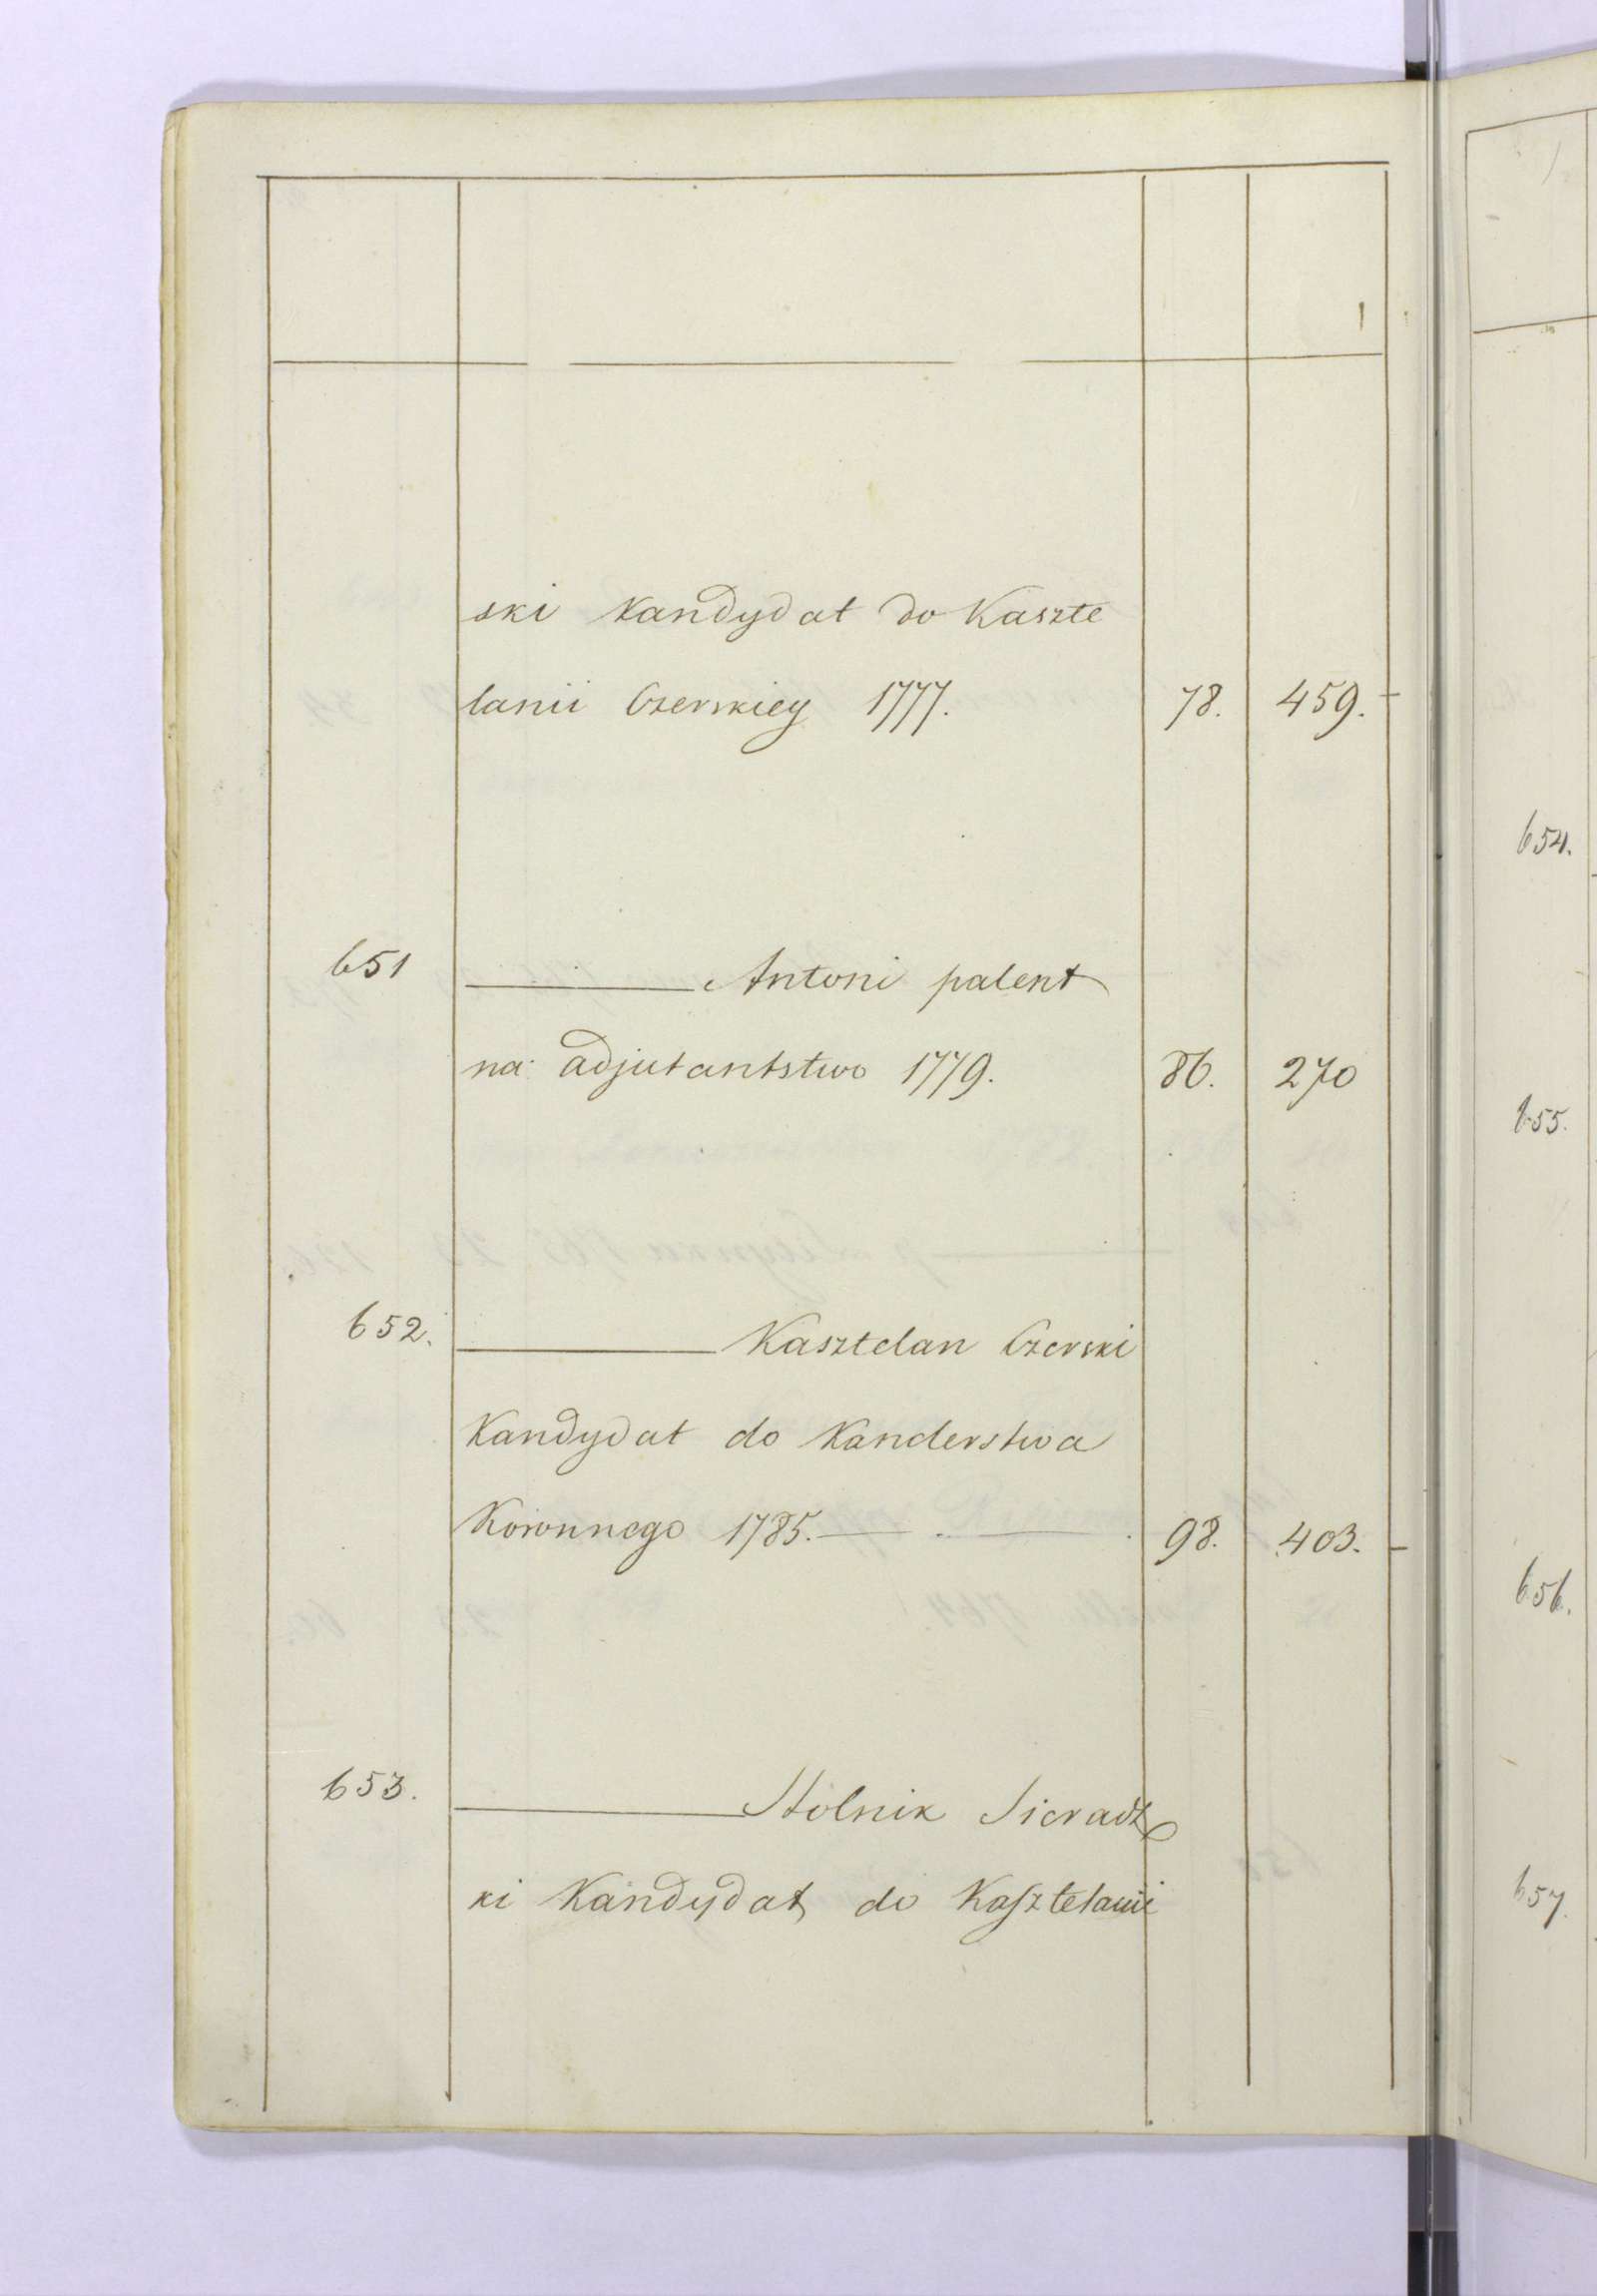 ski Kandydat do Kaszte
lanii Czerskiey 1777. 78. 459.
651 Antoni patent
na adjutantstwo 1779. 86. 270
652. Kasztelan Czerski
Kandydat do Kanclerstwa
Koronnego 1785. 98. 403.
653. Stolnik Sieradz
ki Kandydat do Kasztelanii
654.
655.
656.
657.